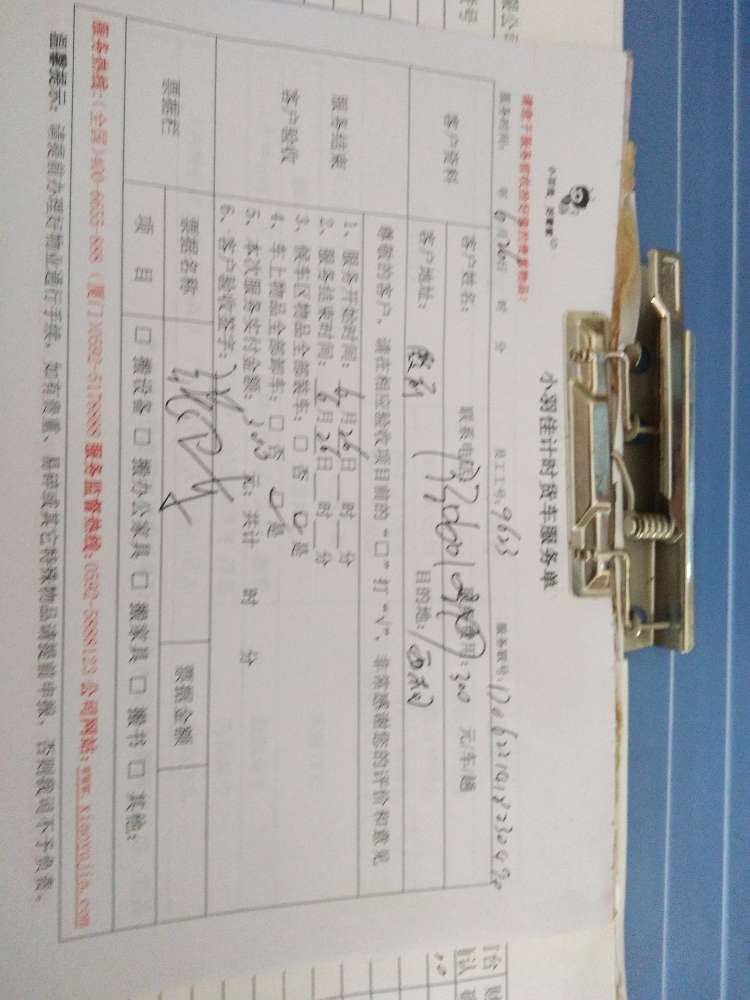 小羽佳计时货车服务单
小羽佳 好管家
请您于服务前收捡好您的贵重物品!
服务时间: 年6月26日 时 分 员工工号:9623 服务账号:
客户资料
客户姓名: 联系电话: 费用:300 元/车/趟
客户地址: 目的地:
尊敬的客户,请在相应验收项目前的“口”打“√”,非常感谢您的评价和意见
服务结束
客户验收
1、服务开始时间:6月26日 时 分
2、服务结束时间:6月26日 时 分
3、候车区物品全部装车:□否 □是
4、车上物品全部卸车:□否 □是
5、本次服务支付金额:303元;共计 时 分
6、客户验收签字:
票据栏
票据名称 票据金额
项 目 □ 搬设备 □ 搬办公家具 □ 搬家具 □ 搬书 □ 其他:
服务热线:(全国)400-6655-888 (厦门)0592-5178888 服务监督热线:0592-5888123 公司网站:www.xiaoyujia.com
温馨提示:请提前办理好物业通行手续,如有贵重、易碎或其它特殊物品请提前申报,否则我司不予负责。